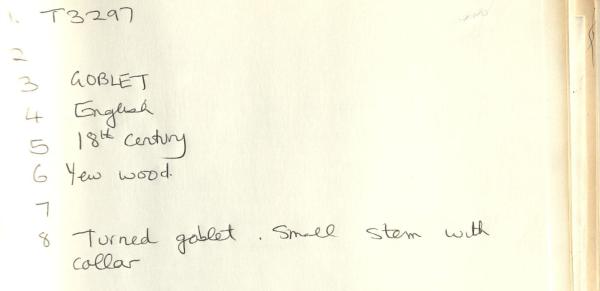 1. T3297
2
3 GOBLET
4 English
5 18th Century
6 Yew wood.
7
8 Turned goblet. Small stem with
collar